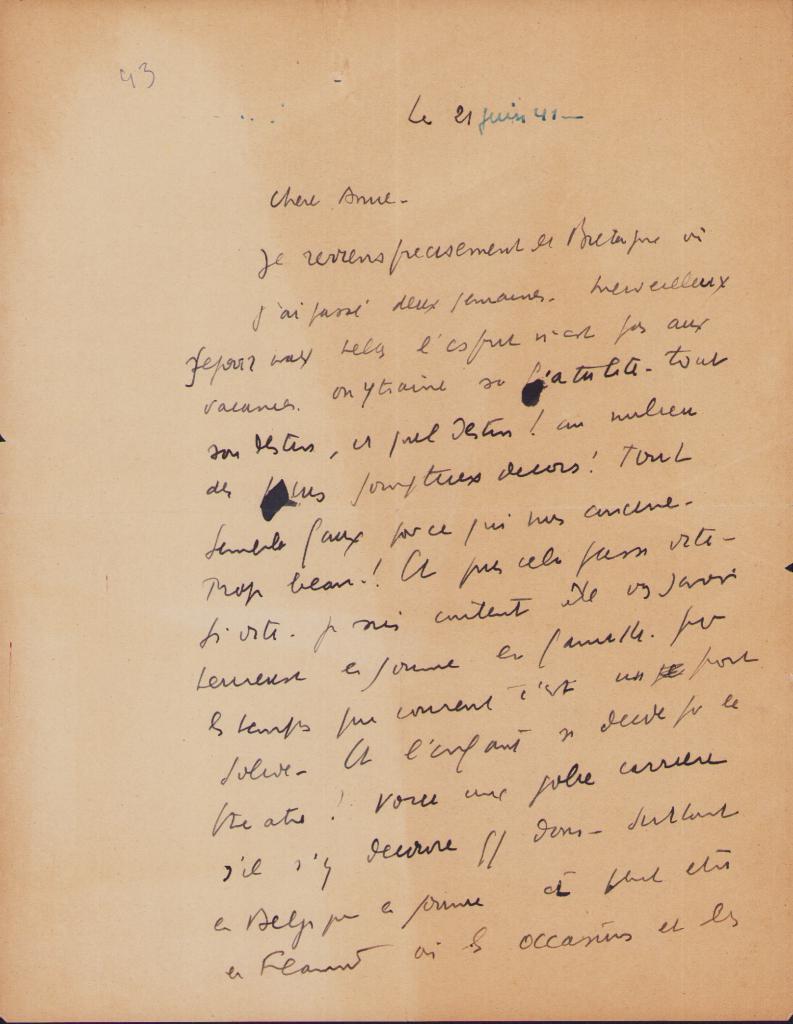 43
Le 21 juin 41 —
Chere Anne -
Je reviens precisement de Bretagne où
j'ai passé deux semaines. Merveilleux
sejour mais helas l'esprit n'est pas aux
vacances. on y traine sa tout
son destin, et quel destin ! au milieu
des plus somptueux decors ! Tout
semble faux par ce qui nous concerne -
Trop beau - ! Et puis cela passe vite -
si vite. je suis content de vous savoir
heureuse en somme en famille. par
les temps qui courent c'est un point
solide - Et l'enfant se decide pour le
theatre ! Voici une jolie carriere
s'il s'y decouvre dons - surtout
en Belgique en somme et peut etre
en Flamand où les occasions et les